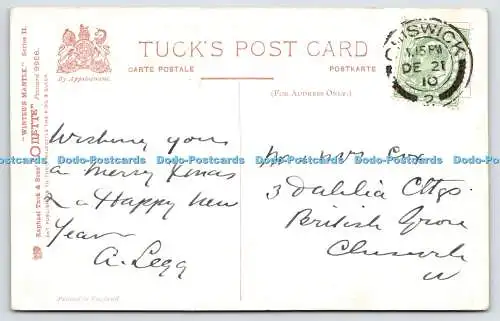 "WINTER'S MANTLE." Series II.
"OILETTE" Postcard 9928.
Raphael Tuck & Sons'
By Appointment.
TUCK'S POST CARD
CARTE POSTALE
POSTKARTE
(FOR ADDRESS ONLY.)
CHISWICK
1.15 PM
DE 21
10
2
Wishing you
a merry Xmas
& a Happy New
Year
A. Legg
Mrs Cox
3 Dahlia Cttgs
British Grove
Chiswick
W
Printed in England.
Dodo-Postcards Dodo-Postcards Dodo-Postcards Dodo-Postcards Dodo-Postcards Dodo-Postcards